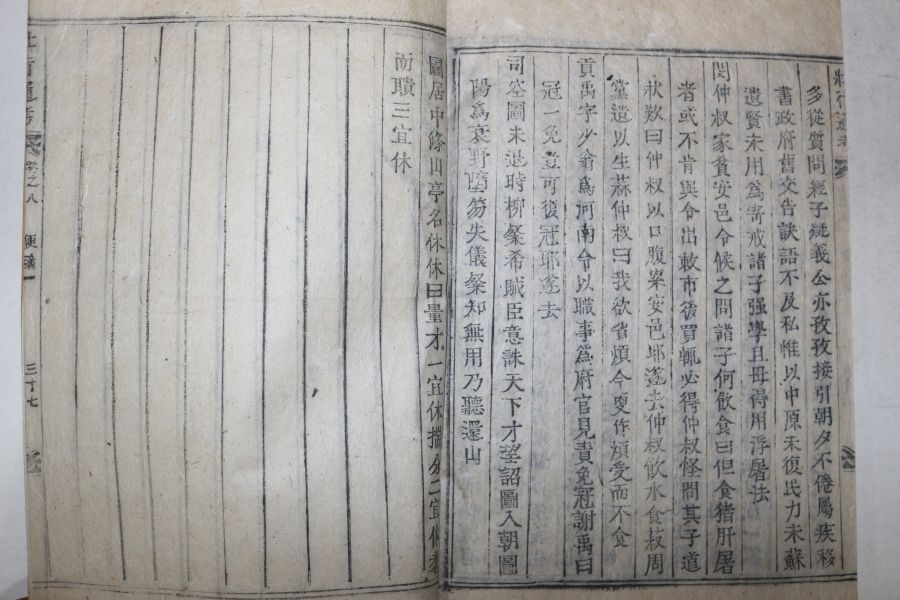 多從質問經子疑義公亦孜孜接引朝夕不倦屬疾移
書政府舊交告訣語不及私惟以中原未復民力未蘇
遺賢未用爲寄戒諸子强學且毋得用浮屠法
閔仲叔家貧安邑令候之問諸子何飮食曰但食猪肝屠
者或不肯與令出敕市後買輒必得仲叔怪問其子道
狀歎曰仲叔以口腹累安邑耶遂去仲叔飮水食菽周
黨遺以生蒜仲叔曰我欲省煩今更作煩受而不食
貢禹字少翁爲河南令以職事爲府官見責免冠謝禹曰
冠一免豈可復冠耶遂去
司空圖未退時柳璨希賊臣意誅天下才望詔圖入朝圖
陽爲衰野墮笏失儀璨知無用乃聽還山
圖居中條山亭名休休曰量才一宜休揣分二宜休耄
而聵三宜休
卷之八
三十七